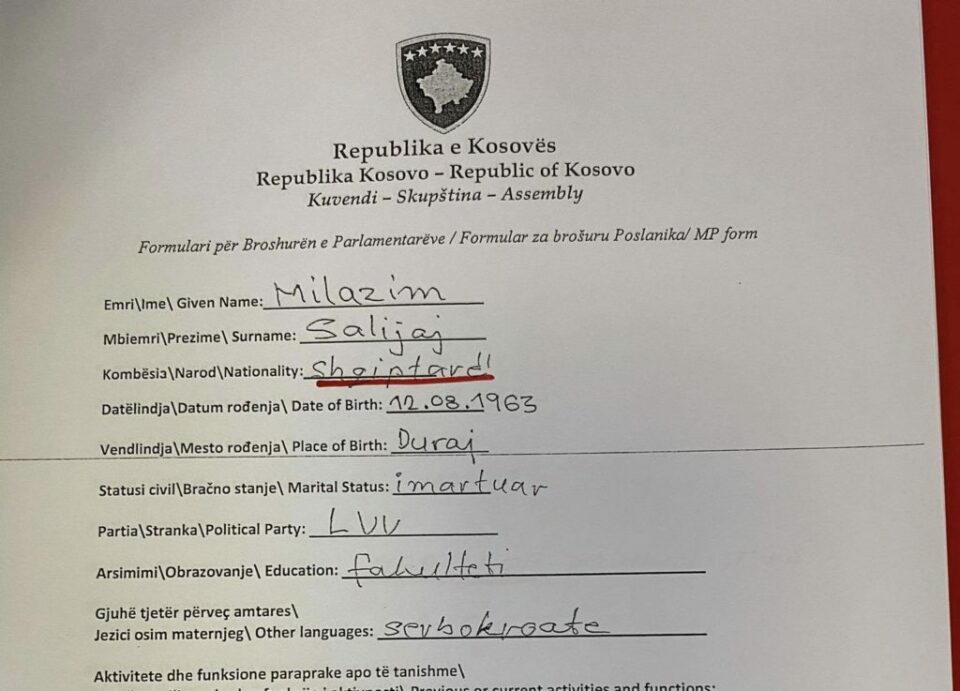 Republika e Kosovës
Republika Kosovo – Republic of Kosovo
Kuvendi – Skupština – Assembly
Formulari për Broshurën e Parlamentarëve / Formular za brošuru Poslanika/ MP form
Emri\Ime\ Given Name: Milazim
Mbiemri\Prezime\ Surname: Salijaj
Kombësia\Narod\Nationality:
Datëlindja\Datum rođenja\ Date of Birth: 12.08.1963
Vendlindja\Mesto rođenja\ Place of Birth: Duraj
Statusi civil\Bračno stanje\ Marital Status: imartuar
Partia\Stranka\Political Party: LVV
Arsimimi\Obrazovanje\ Education: fakulteti
Gjuhë tjetër përveç amtares\
Jezici osim maternjeg\ Other languages: serbokroate
Aktivitete dhe funksione paraprake apo të tanishme\
Previous or current activities and functions: